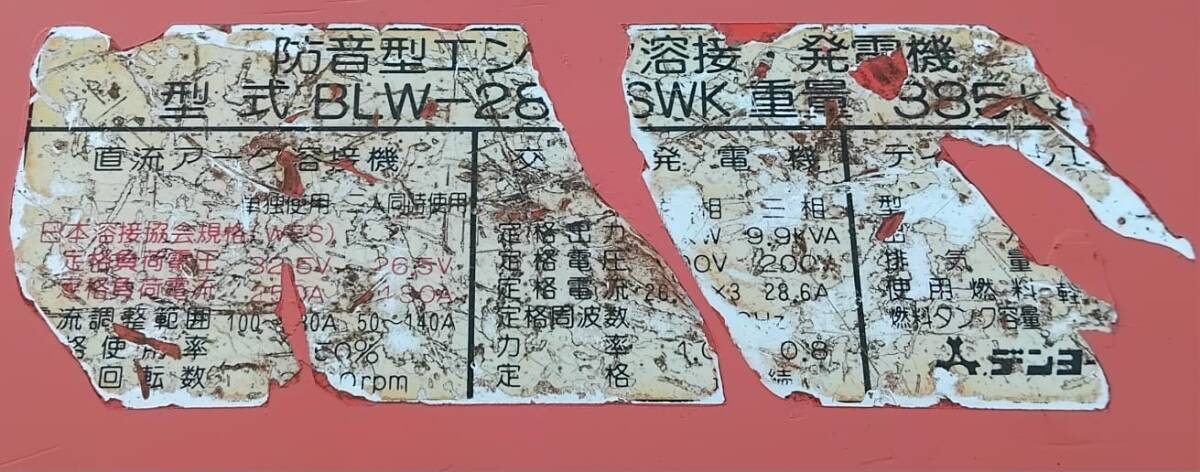 防音型エン 溶接・発電機
型式 BLW-28 SWK 重量 385kg
直流アーク溶接機 交 発電機 ディ
単独使用 二人同時使用 相 三相 型
日本溶接協会規格(WES) 定格出力 KW 9.9KVA 出
定格負荷電圧 32.5V 26.5V 定格電圧 00V 200V 排気量
定格負荷電流 定格電流 26. ×3 28.6A 使用燃料 軽
流調整範囲 50~140A 定格周波数 Hz 燃料タンク容量
格使用率 50% 力率 1.0 0.8
回転数 0rpm 定格 続 デンヨー